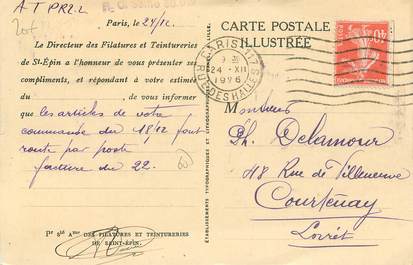 A T PR2.L
Paris, le 24/12
Le Directeur des Filatures et Teintureries
de St-Épin a l'honneur de vous présenter ses
compliments, et répondant à votre estimée
du , de vous informer
que les articles de votre
commande du 18/12 font
route par poste
facture du 22.
Pr Sté Ame DES FILATURES ET TEINTURERIES
DE SAINT-ÉPIN.
ÉTABLISSEMENTS TYPOGRAPHIQUES ET LITHOGRAPHIQUES
CARTE POSTALE
ILLUSTRÉE
PARIS
24 -XII
1926
RUE DES HALLES
Monsieur
Ph. Delamour
48 Rue de Villeneuve
Courtenay
Loiret